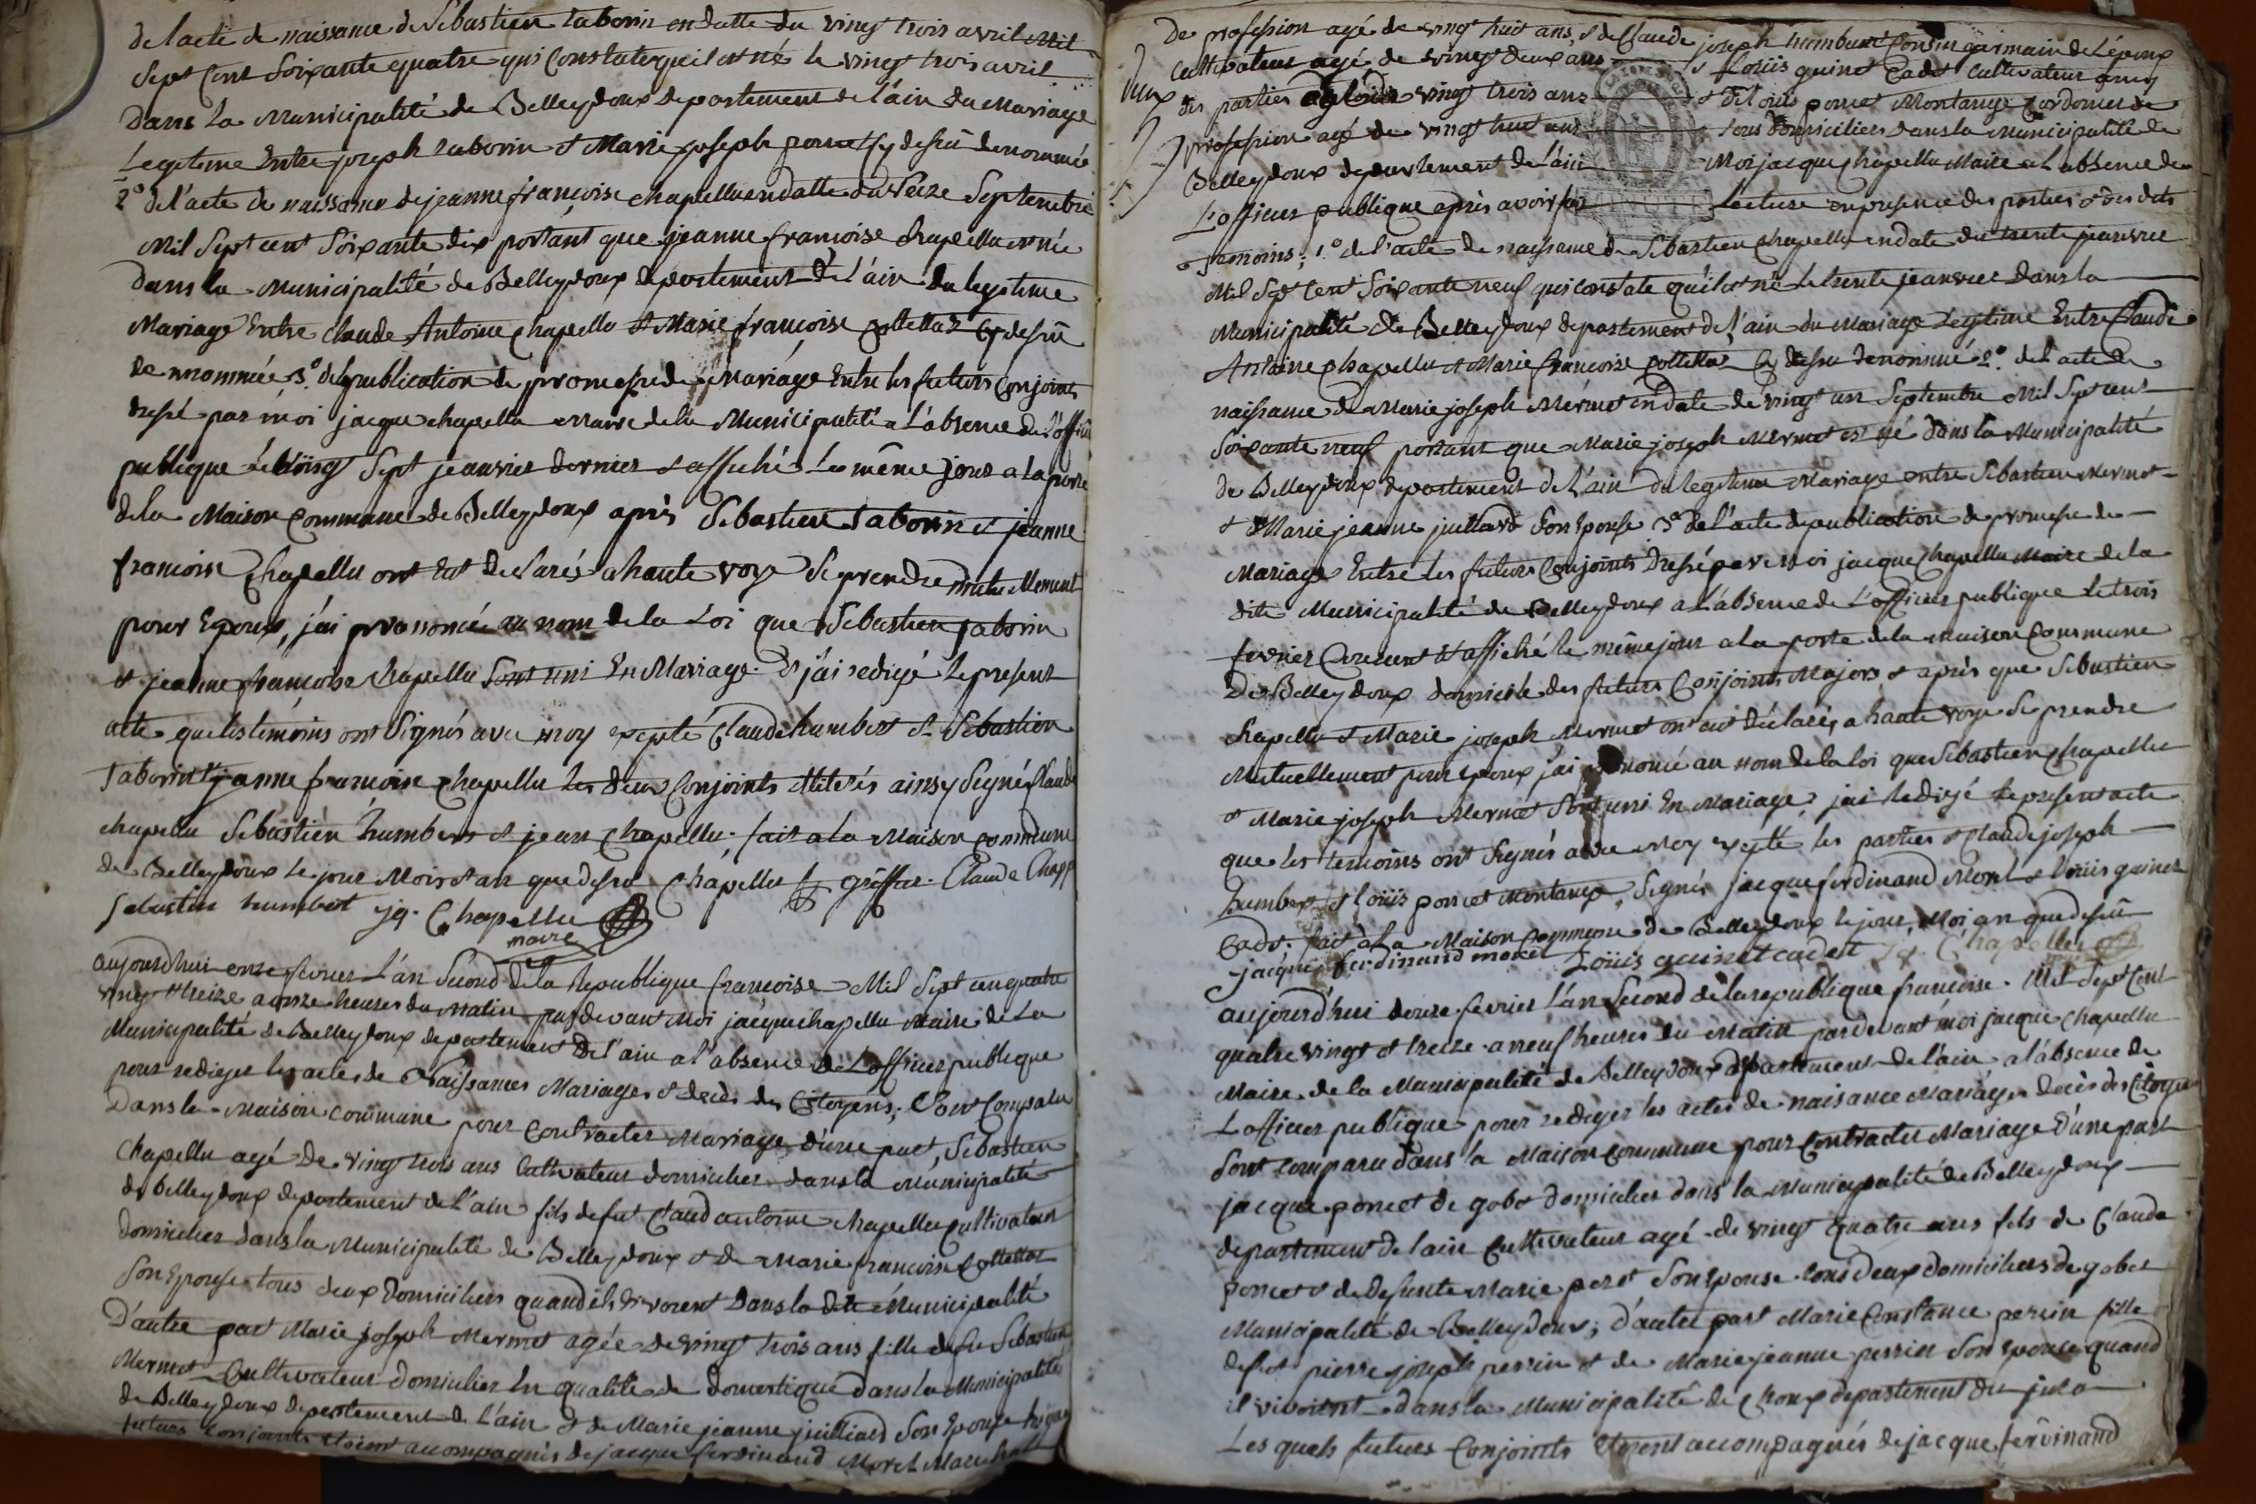 de l'acte de naissance de Sebastien taborin en datte du vingt trois avril mil
Sept Cent Soixante quatre qui Constate qu'il est né le vingt trois avril
dans la Municipalité de Belleydoux departement de l'ain du Mariage
Legitime Entre joseph taborin et Marie joseph poncet cy dessû denommée
2º de l'acte de naissance de jeanne françoise chapellu en datte du Seize Septembre
Mil Sept cent Soixante dix portant que jeanne françoise chapellu est née
dans la Municipalité de Belleydoux departement de l'ain du legitime
Mariage Entre claude Antoine chapellu et Marie françoise collettaz cy dessû
denommée 3º de publication de promesse de Mariage Entre les futurs conjoints
dressé par moi jacque chapellu maire de la Municipalité a l'absence de l'officier
publique le vingt Sept jeanvier dernier et affiché le même jour a la porte
de la Maison commune de Belleydoux après Sebastien taborin et jeanne
francoise chapellu ont Eut declarés a haute voye Se prendre mutuellement
pour Epoux, j'ai prononcé au nom de la Loi que Sebastien taborin
et jeanne francoise chapellu Sont uni En Mariage. et j'ai redigé le present
acte que les témoins ont Signés avec moy excepté Claude humbert et Sebastien
taborin et janne francoise chapellu les deux Conjoints illiterés ainsy Signé Claude
chapellu Sebastien humbert et jean chapellu. fait a la Maison commune
de Belleydoux le jour Mois et an que dessû chapellu greffier. Claude Chapp
Sebastien humbert jq. Chapellu
maire
aujourdhui onze fevrier L'an Second de la Republique francoise Mil Sept cen quatre
vingt et treize a onze heures du Matin par devant Moi jacque chapellu Maire de La
Municipalité de Belleydoux departement de l'ain a l'absence de L'officier publique
pour rediger les actes de Naissances Mariages et deces des Citoyens, Sont Comparu
Dans la Maison commune pour Contracter Mariage d'une part, Sebastien
Chapellu agé de vingt trois ans Cultivateur domicilier dans la Municipalité
de Belleydoux departement de l'ain fils de fut Claud antoine chapellu Cultivateur
domicilier dans la Municipalité de Belleydoux et de Marie francoise Collettaz
Son Epouse tous deux Domiciliers quand ils vivoient Dans la dite Municipalité
D'autre part Marie joseph Mermet agée de vingt trois ans fille de fu Sebastien
Mermet Cultivateur domicilier En qualité de domestique dans la Municipalité
de Belleydoux departement de L'ain et de Marie jeanne juilliard Son Epouse
futurs conjoints Etoient accompagnés de jacque ferdinand Morel Marechall
De profession agé de vingt huit ans, et de Claude joseph humbert Cousin germain de L'epoux
Cultivateur agé de vingt deux ans et Louis guinet Cadet Cultivateur amy
des parties agé de vingt trois ans et de louis poncet Montange Cordonier de
profession agé de vingt huit ans tous domiciliers dans la Municipalité de
Belleydoux departement de l'ain Moi jacque chapellu Maire a L'absence de
L'officier publique après avoir fait Lecture en presence des parties et des dits
temoins; 1º de l'acte de naissance de Sebastien chapellu en date du trente jeanvier
Mil Sept Cent Soixante neuf qui constate qu'il est né le trente jeanvier dans la
Municipalité de Belleydoux departement de l'ain du Mariage Legitime Entre Claude
Antoine chapellu et Marie francoise collettaz cy dessu denommé 2º. de l'acte de
naissance de Marie joseph Mermet en date de vingt un Septembre Mil Sept cent
Soixante neuf portant que Marie joseph Mermet est né dans la Municipalité
de Belleydoux departement de l'ain du legitime Mariage entre Sebastien Mermet
et Marie jeanne juillard Son Epouse 3º de l'acte de publication de promesse de
Mariage Entre les futurs Conjoints dressé par moi jacque chapellu Maire de la
dite Municipalité de Belleydoux a L'absence de L'officier publique le trois
fevrier Courrent et affiché le même jour a la porte de la maison Commune
De Belleydoux domicile des futurs Conjoints Majors et après que Sebastien
chapellu et Marie joseph Mermet ont eut déclarés a haute voye Se prendre
Mutuellement pour Epoux j'ai prononcé au nom de la loi que Sebastien chapellu
et Marie joseph Mermet Sont uni En Mariage, j'ai redigé le present acte
que les temoins ont Signés avec moy excepté les parties et Claude joseph
humbert et Louis poncet Montange, Signés jacque ferdinand Morel et Louis guinet
Cadet. fait a la Maison Commune de Belleydoux le jour, Moi an que dessû
jacque ferdinand morel Louis guinet cadet jq. Chapellu
aujourd'hui douze fevrier L'an Second de la republique francoise. Mil Sept Cent
quatre vingt et treize a neuf heures du Matin pardevant moi jacque chapellu
Maire de la Municipalité de Belleydoux departement de l'ain a l'absence de
L'officier publique pour rediger les actes de naisance Mariages Décès des Citoyens
Sont Comparu dans la Maison Commune pour Contracter Mariage d'une part
jacque poncet de gobet domicilier dans la Municipalité de Belleydoux
departement de lain Cultivateur agé de vingt quatre ans fils de Claude
poncet et de Defunte Marie peret Son Epouse tous deux domiciliers de gobet
Municipalité de Belleydoux; d'autre part Marie Constance perrin fille
de fut pierre joseph perrin et de Marie jeanne perrier Son Epouse quand
il vivoient dans la Municipalité de Choux departement du jura
Les quels futurs Conjoints Etoient accompagnés de jacque ferdinand